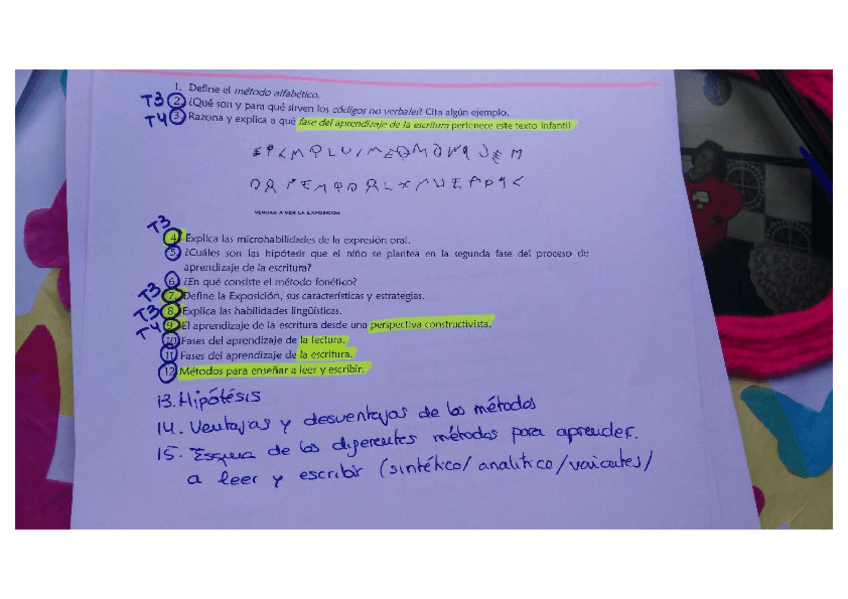 1. Define el método alfabético.
T3 2. ¿Qué son y para qué sirven los códigos no verbales? Cita algún ejemplo.
T4 3. Razona y explica a qué fase del aprendizaje de la escritura pertenece este texto infantil
VENGAN A VER LA EXPOSICIÓN
T3
4. Explica las microhabilidades de la expresión oral.
5. ¿Cuáles son las hipótesis que el niño se plantea en la segunda fase del proceso de
aprendizaje de la escritura?
6. ¿En qué consiste el método fonético?
T3 7. Define la Exposición, sus características y estrategias.
T3 8. Explica las habilidades lingüísticas.
T4 9. El aprendizaje de la escritura desde una perspectiva constructivista.
10. Fases del aprendizaje de la lectura.
11. Fases del aprendizaje de la escritura.
12. Métodos para enseñar a leer y escribir.
13. Hipótesis
14. Ventajas y desventajas de los métodos
15. de los diferentes métodos para aprender.
a leer y escribir (sintético/analítico/